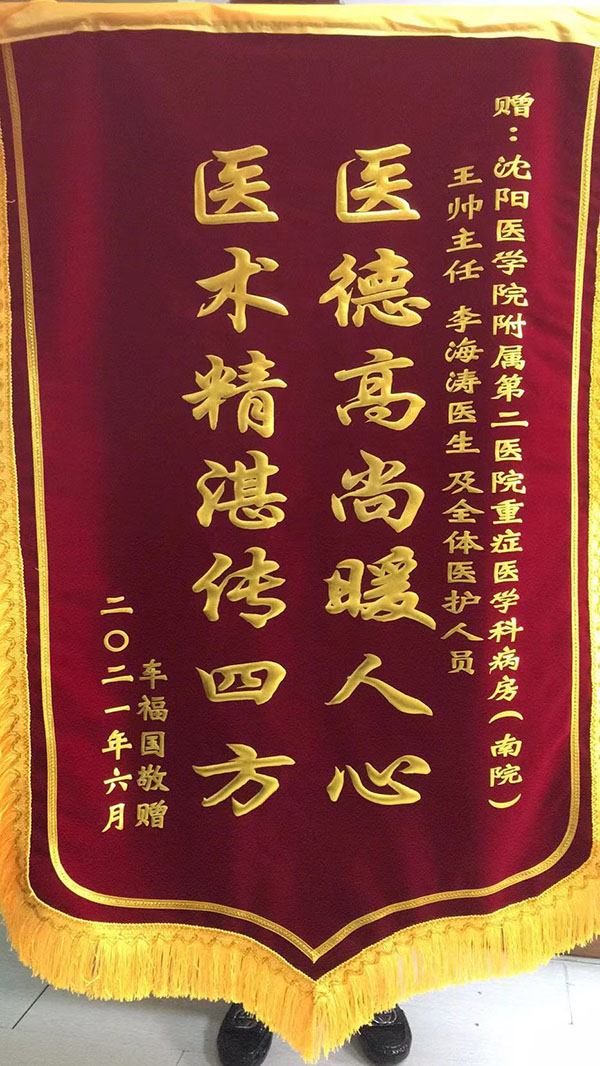 赠：沈阳医学院附属第二医院重症医学科病房（南院）
王帅主任 李海涛医生 及全体医护人员
医德高尚暖人心
医术精湛传四方
车福国敬赠
二〇二一年六月